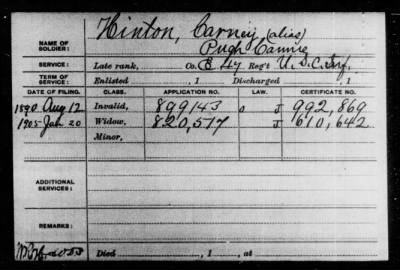 Hinton, Carney (alias)
NAME OF SOLDIER: Pugh Canning
SERVICE: Late rank, Co. E 47 Reg't U.S.C. Inf.
TERM OF SERVICE: Enlisted , 1 Discharged , 1
DATE OF FILING. CLASS. APPLICATION NO. LAW. CERTIFICATE NO.
1890 Aug 12 Invalid, 899143 J 992,869
1905 Jan 20 Widow, 820,517 J 610,642
Minor,
ADDITIONAL SERVICES:
REMARKS:
Died , 1 , at